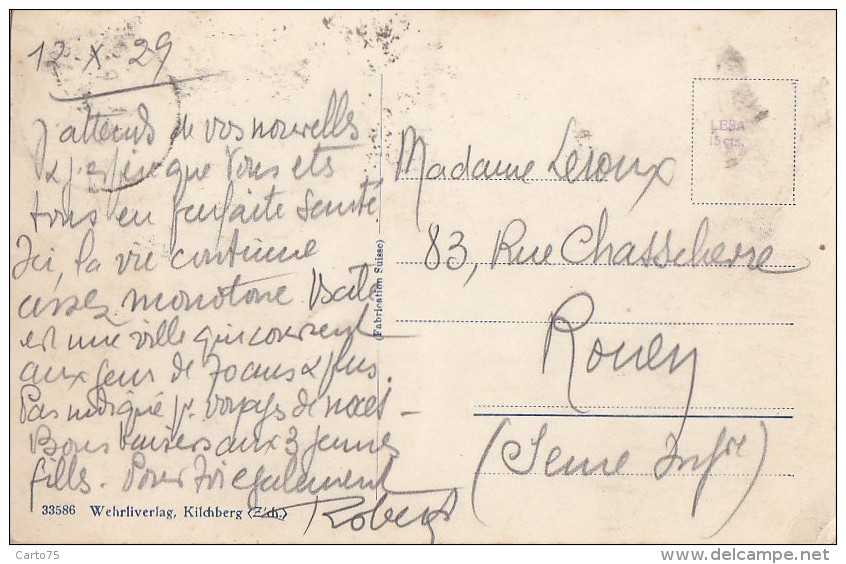 12 X 29
J'attends de vos nouvelles
& j'espère que vous êts
tous en parfaite santé.
Ici, la vie continue
assez monotone. Bale
est une ville qui convient
aux gens de 70 ans & plus.
Pas indiqué pr voyags de noces –
Bons baisers aux 3 jeunes
filles. Pour toi également
Robert
33586 Wehrliverlag, Kilchberg (Zch.)
(Fabrication Suisse)
LESA
15 cts.
Madame Leroux
83, Rue Chasselievre
Rouen
(Seine Infre)
Carto75
www.delcampe.net